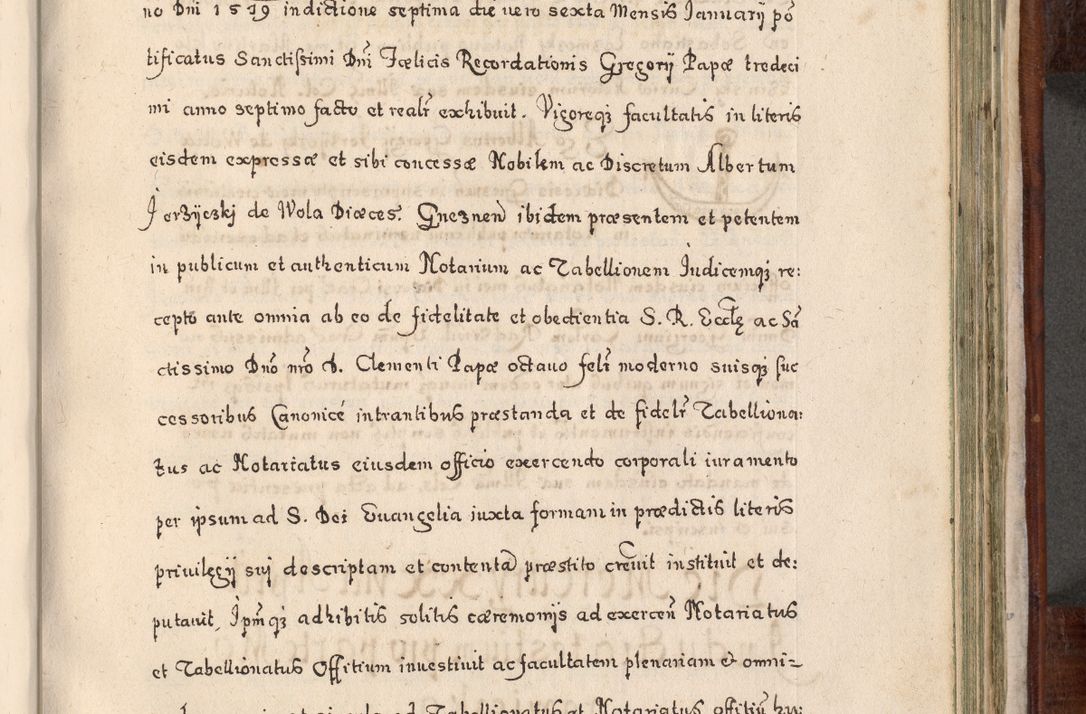 no Dni 1579 indictione septima die uero sexta Mensis Januarÿ põ
tificatus Sanctissimi Dñi Fœlicis Recordationis Gregorÿ Papæ tredeci
mi anno septimo facto et realr̃ exhibuit. Vigoreqȝ facultatis in literis
eisdem expressæ et sibi concessæ Nobilem ac Discretum Albertum
Jerzÿczkj de Wola Diœces: Gneznen̄ ibidem præsentem et petentem
in publicum et authenticum Notarium ac Tabellionem Judicemqȝ re:
cepto ante omnia ab eo de fidelitate et obedientia S. R. Ecclę ac Sã
ctissimo Dño nr̃o D. Clementi Papæ octauo felr̃ moderno suisqȝ suc
cessoribus Canonicé intrantibus præstanda et de fidelr̃ Tabelliona:
tus ac Notariatus eiusdem officio exercendo corporali iuramento
per ipsum ad S. Dei Euangelia iuxta formam in prædictis literis
priuilęgÿ suj descriptam et contenta præstito creuit instituit et de:
putauit, Ipm̃qȝ adhibitis solitis cæremonijs ad exercen̄ Notariatus
et Tabellionatus Offitium inuestiuit ac facultatem plenariam & omni-
Tabellionatus et Notariatus offitiũ hu: